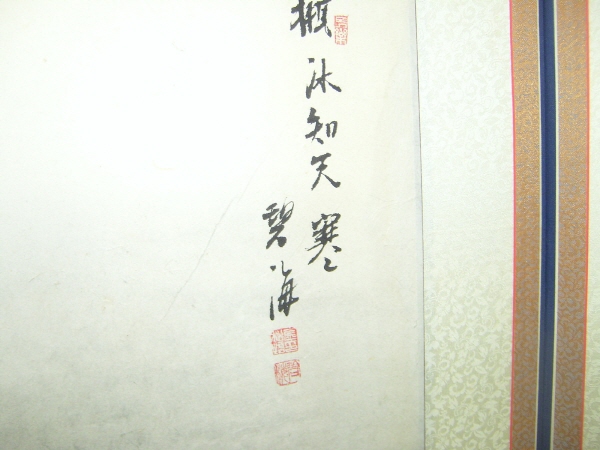 瓶冰知天寒
碧海